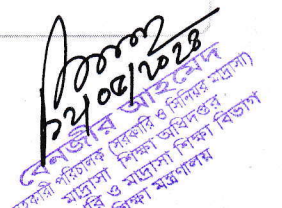 ১২/০৫/২০২৪
বেনজীর আহমেদ
সহকারী পরিচালক (সরকারি ও সিনিয়র মাদ্রাসা)
মাদ্রাসা শিক্ষা অধিদপ্তর
কারিগরি ও মাদ্রাসা শিক্ষা বিভাগ
শিক্ষা মন্ত্রণালয়